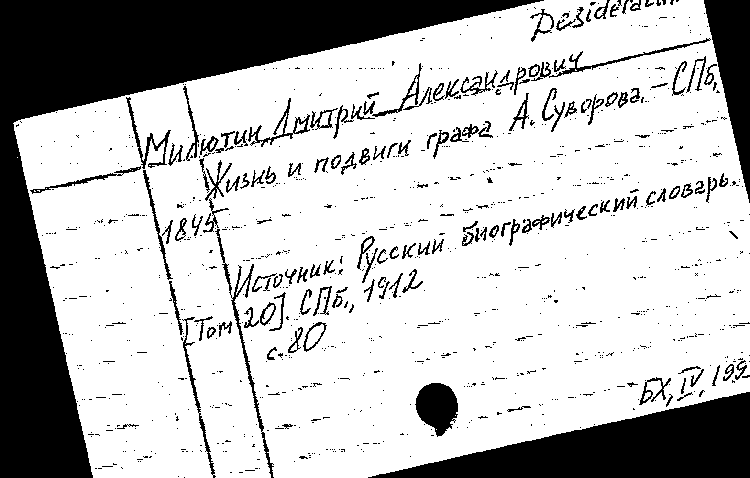 Desiderata
Милютин, Дмитрий Александрович
Жизнь и подвиги графа А. Суворова. — СПб,
1845
Источник: Русский биографический словарь.
[Том 20]. СПб., 1912
с. 80
БХ, IV, 199